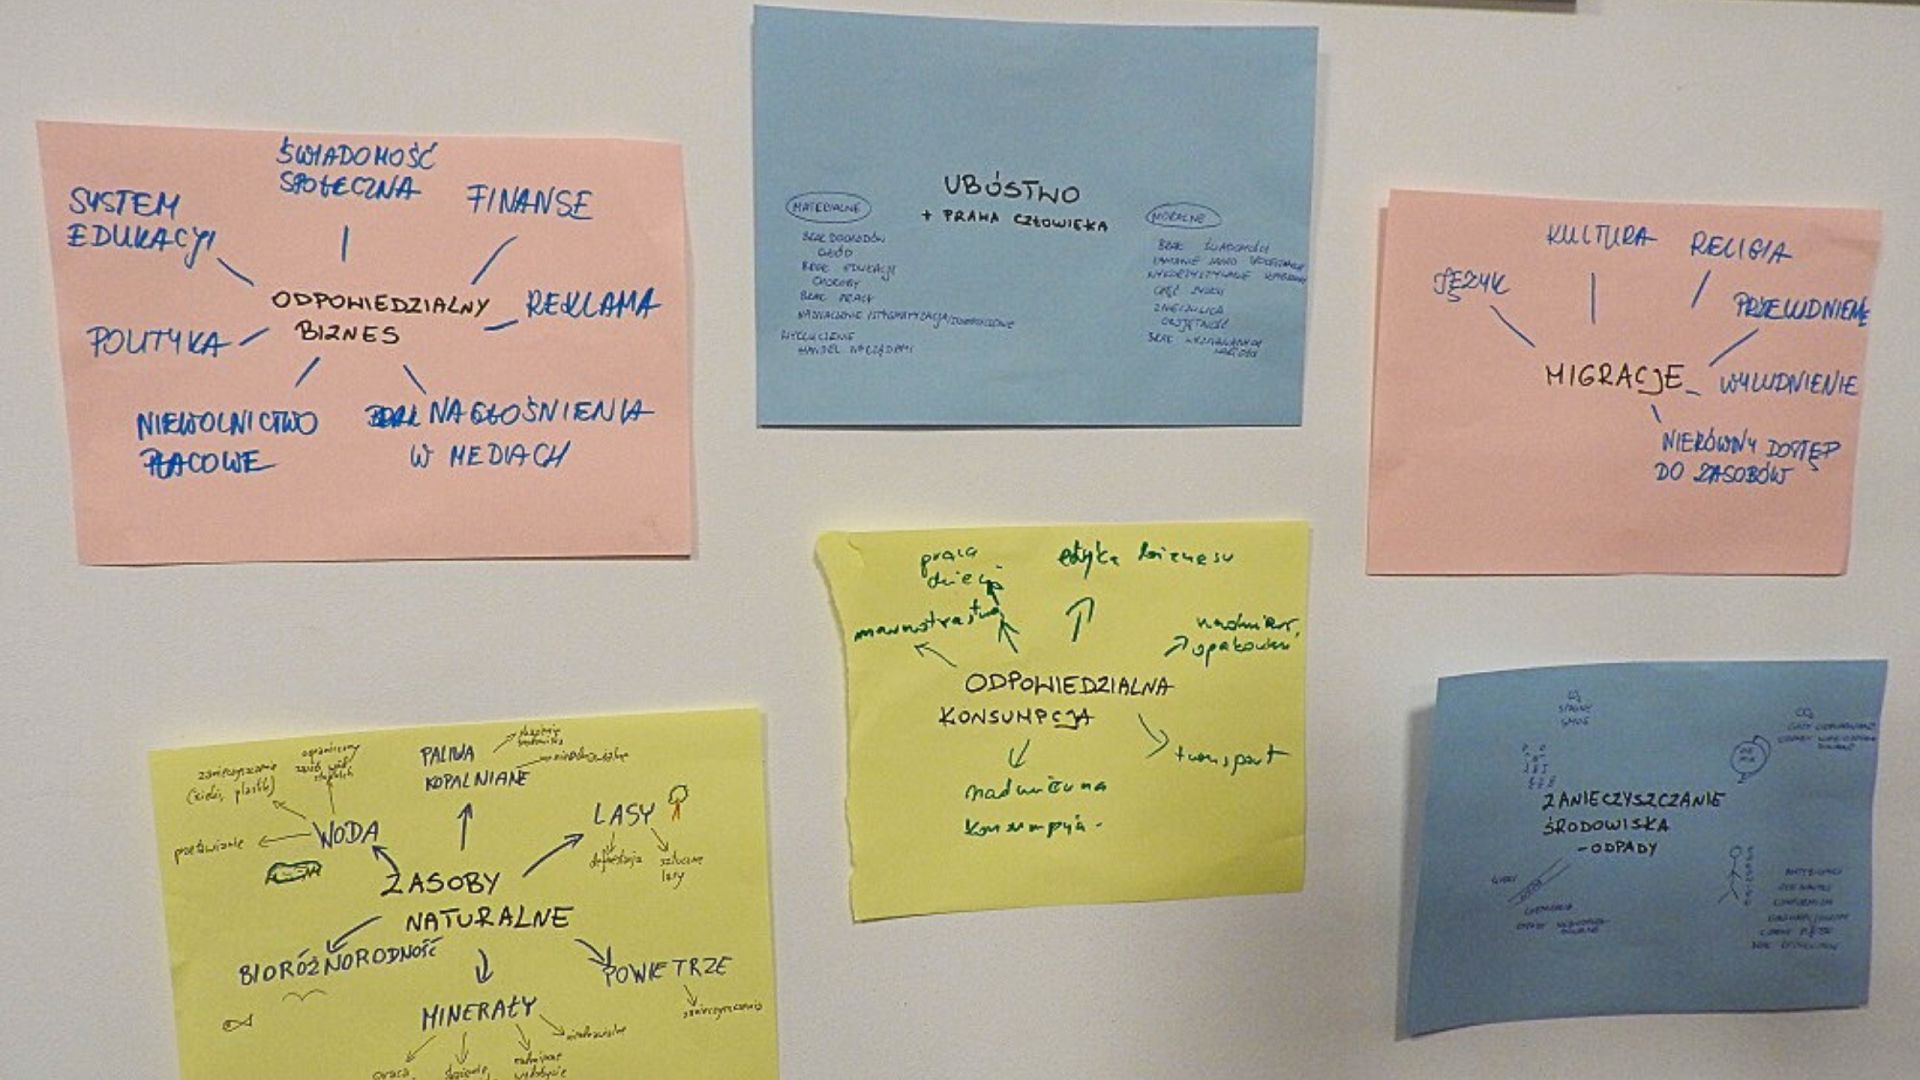 ŚWIADOMOŚĆ
SPOŁECZNA
SYSTEM
EDUKACJI
FINANSE
ODPOWIEDZIALNY
BIZNES
REKLAMA
POLITYKA
NIEWOLNICTWO
PŁACOWE
NAGŁOŚNIENIA
W MEDIACH
UBÓSTWO
+ PRAWA CZŁOWIEKA
MATERIALNE
BRAK DOCHODÓW
GŁÓD
BRAK EDUKACJI
CHOROBY
BRAK PRACY
WYKLUCZENIE
HANDEL NARZĄDAMI
MORALNE
BRAK ŚWIADOMOŚCI
CHĘĆ ZYSKU
ZNIECZULICA
OBOJĘTNOŚĆ
KULTURA
RELIGIA
JĘZYK
PRZELUDNIENIE
MIGRACJE
WYLUDNIENIE
NIERÓWNY DOSTĘP
DO ZASOBÓW
praca
dzieci
etyka biznesu
marnotrastwo
nadmier.
opakowań
ODPOWIEDZIALNA
KONSUMPCJA
transport
nadmierna
konsumpcja
PALIWA
KOPALNIANE
zanieczyszczenie
(ścieki, plastik)
ograniczony
WODA
LASY
deforestacja
sztuczne
lasy
ZASOBY
NATURALNE
BIORÓŻNORODNOŚĆ
POWIETRZE
zanieczyszczenie
MINERAŁY
nieodnawialne
praca
nadmierne
wydobycie
SMOG
CO2
ZANIECZYSZCZANIE
ŚRODOWISKA
- ODPADY